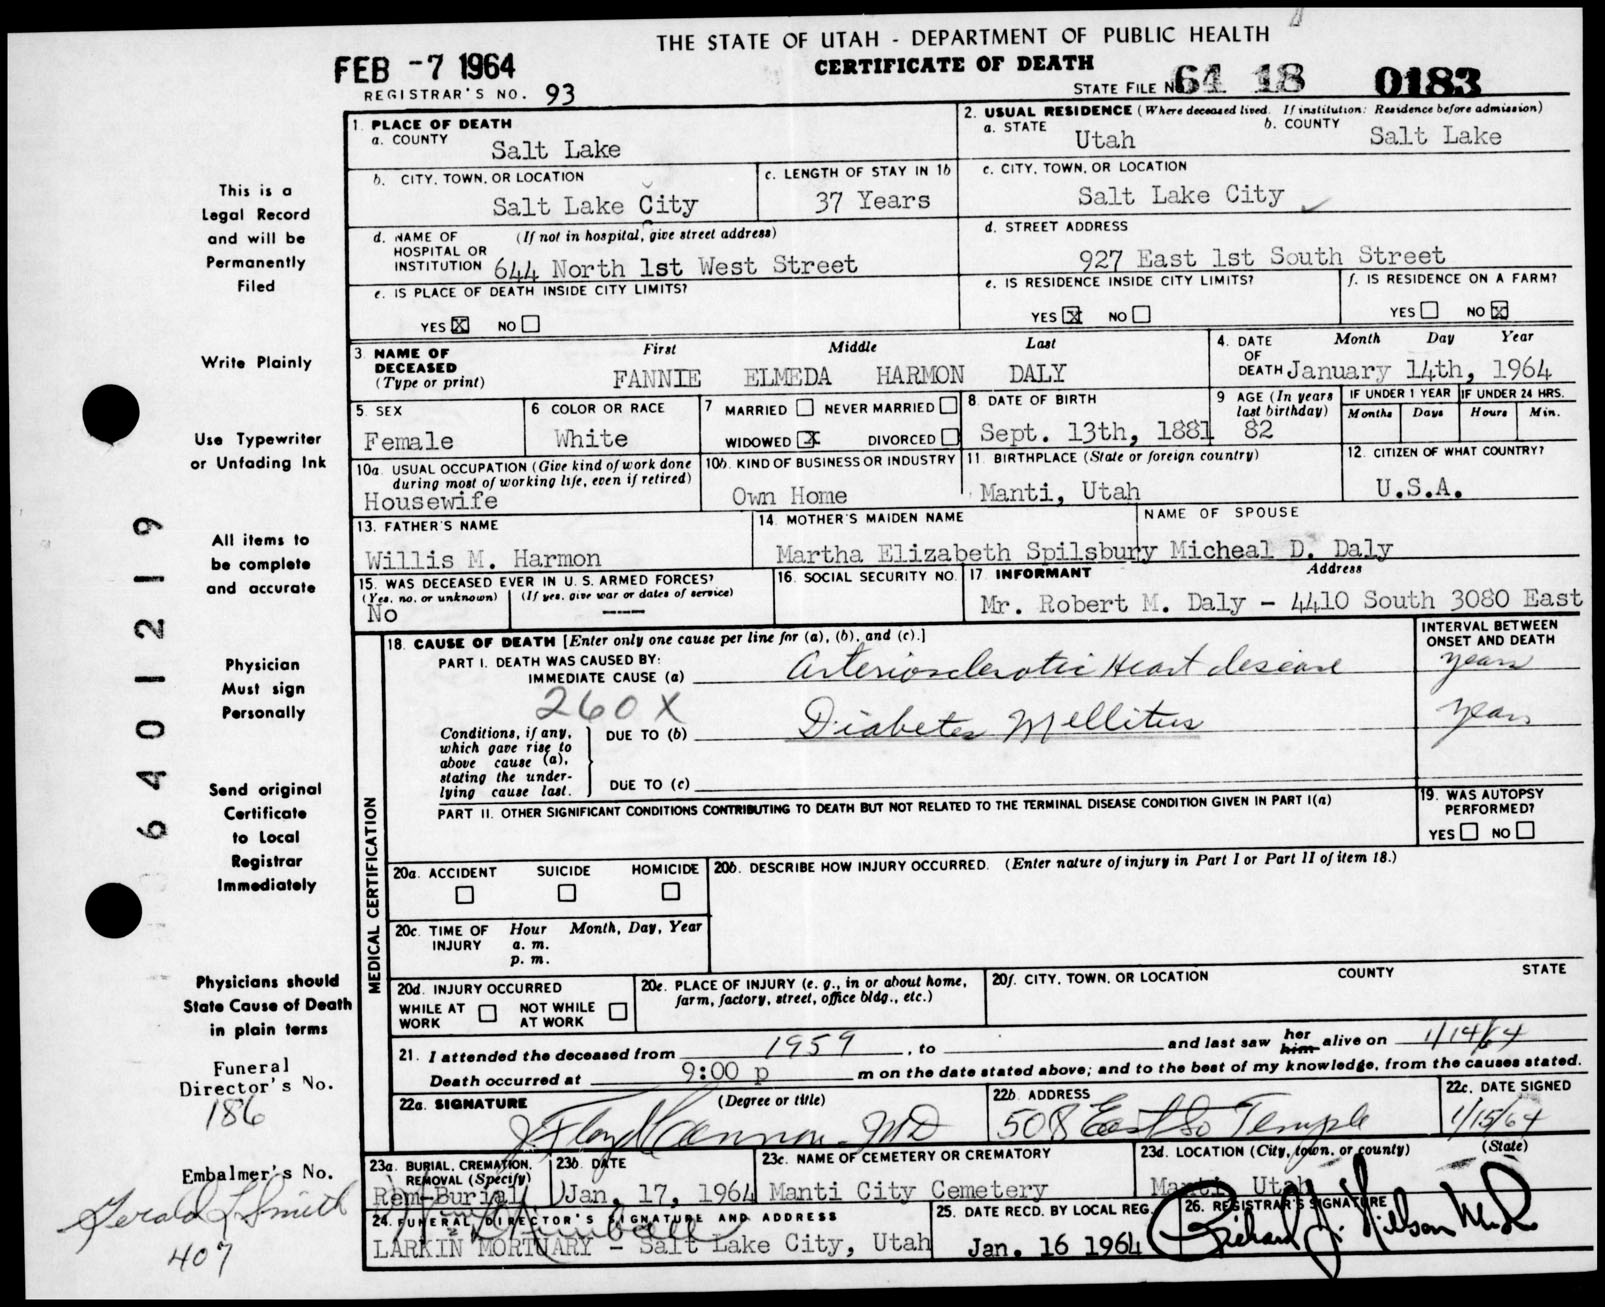 THE STATE OF UTAH - DEPARTMENT OF PUBLIC HEALTH
CERTIFICATE OF DEATH
FEB -7 1964
REGISTRAR'S NO. 93
STATE FILE NO 64 18 0183
This is a
Legal Record
and will be
Permanently
Filed
Write Plainly
Use Typewriter
or Unfading Ink
All items to
be complete
and accurate
Physician
Must sign
Personally
Send original
Certificate
to Local
Registrar
Immediately
Physicians should
State Cause of Death
in plain terms
Funeral
Director's No.
186
Embalmer's No.
Gerald L Smith
407
64101219
1. PLACE OF DEATH
a. COUNTY
Salt Lake
2. USUAL RESIDENCE (Where deceased lived. If institution: Residence before admission)
a. STATE Utah b. COUNTY Salt Lake
b. CITY, TOWN, OR LOCATION
Salt Lake City
c. LENGTH OF STAY IN 1b
37 Years
c. CITY, TOWN, OR LOCATION
Salt Lake City
d. NAME OF HOSPITAL OR INSTITUTION (If not in hospital, give street address)
644 North 1st West Street
d. STREET ADDRESS
927 East 1st South Street
e. IS PLACE OF DEATH INSIDE CITY LIMITS?
YES X NO
e. IS RESIDENCE INSIDE CITY LIMITS?
YES X NO
f. IS RESIDENCE ON A FARM?
YES NO X
3. NAME OF DECEASED (Type or print)
First Middle Last
FANNIE ELMEDA HARMON DALY
4. DATE OF DEATH Month Day Year
January 14th, 1964
5. SEX
Female
6 COLOR OR RACE
White
7 MARRIED NEVER MARRIED
WIDOWED X DIVORCED
8. DATE OF BIRTH
Sept. 13th, 1881
9 AGE (In years last birthday)
82
IF UNDER 1 YEAR
Months Days
IF UNDER 24 HRS.
Hours Min.
10a. USUAL OCCUPATION (Give kind of work done during most of working life, even if retired)
Housewife
10b. KIND OF BUSINESS OR INDUSTRY
Own Home
11. BIRTHPLACE (State or foreign country)
Manti, Utah
12. CITIZEN OF WHAT COUNTRY?
U.S.A.
13. FATHER'S NAME
Willis M. Harmon
14. MOTHER'S MAIDEN NAME
Martha Elizabeth Spilsbury
NAME OF SPOUSE
Micheal D. Daly
15. WAS DECEASED EVER IN U. S. ARMED FORCES?
(Yes, no, or unknown) (If yes, give war or dates of service)
No ----
16. SOCIAL SECURITY NO.
17. INFORMANT Address
Mr. Robert M. Daly - 4410 South 3080 East
MEDICAL CERTIFICATION
18. CAUSE OF DEATH [Enter only one cause per line for (a), (b), and (c).]
INTERVAL BETWEEN ONSET AND DEATH
PART I. DEATH WAS CAUSED BY:
IMMEDIATE CAUSE (a) Arteriosclerotic Heart disease years
260X
Conditions, if any, which gave rise to above cause (a), stating the underlying cause last.
DUE TO (b) Diabetes Mellitus years
DUE TO (c)
PART II. OTHER SIGNIFICANT CONDITIONS CONTRIBUTING TO DEATH BUT NOT RELATED TO THE TERMINAL DISEASE CONDITION GIVEN IN PART I(a)
19. WAS AUTOPSY PERFORMED?
YES NO
20a. ACCIDENT SUICIDE HOMICIDE
20b. DESCRIBE HOW INJURY OCCURRED. (Enter nature of injury in Part I or Part II of item 18.)
20c. TIME OF INJURY Hour Month, Day, Year
a. m.
p. m.
20d. INJURY OCCURRED
WHILE AT WORK NOT WHILE AT WORK
20e. PLACE OF INJURY (e. g., in or about home, farm, factory, street, office bldg., etc.)
20f. CITY, TOWN, OR LOCATION COUNTY STATE
21. I attended the deceased from 1959, to and last saw her him alive on 1/14/64
Death occurred at 9:00 p m on the date stated above; and to the best of my knowledge, from the causes stated.
22a. SIGNATURE (Degree or title)
J Floyd Cannon MD
22b. ADDRESS
508 East So Temple
22c. DATE SIGNED
1/15/64
23a. BURIAL, CREMATION, REMOVAL (Specify)
Rem-Burial
23b. DATE
Jan. 17, 1964
23c. NAME OF CEMETERY OR CREMATORY
Manti City Cemetery
23d. LOCATION (City, town, or county) (State)
Manti, Utah
24. FUNERAL DIRECTOR'S SIGNATURE AND ADDRESS
LARKIN MORTUARY - Salt Lake City, Utah
25. DATE RECD. BY LOCAL REG.
Jan. 16 1964
26. REGISTRAR'S SIGNATURE